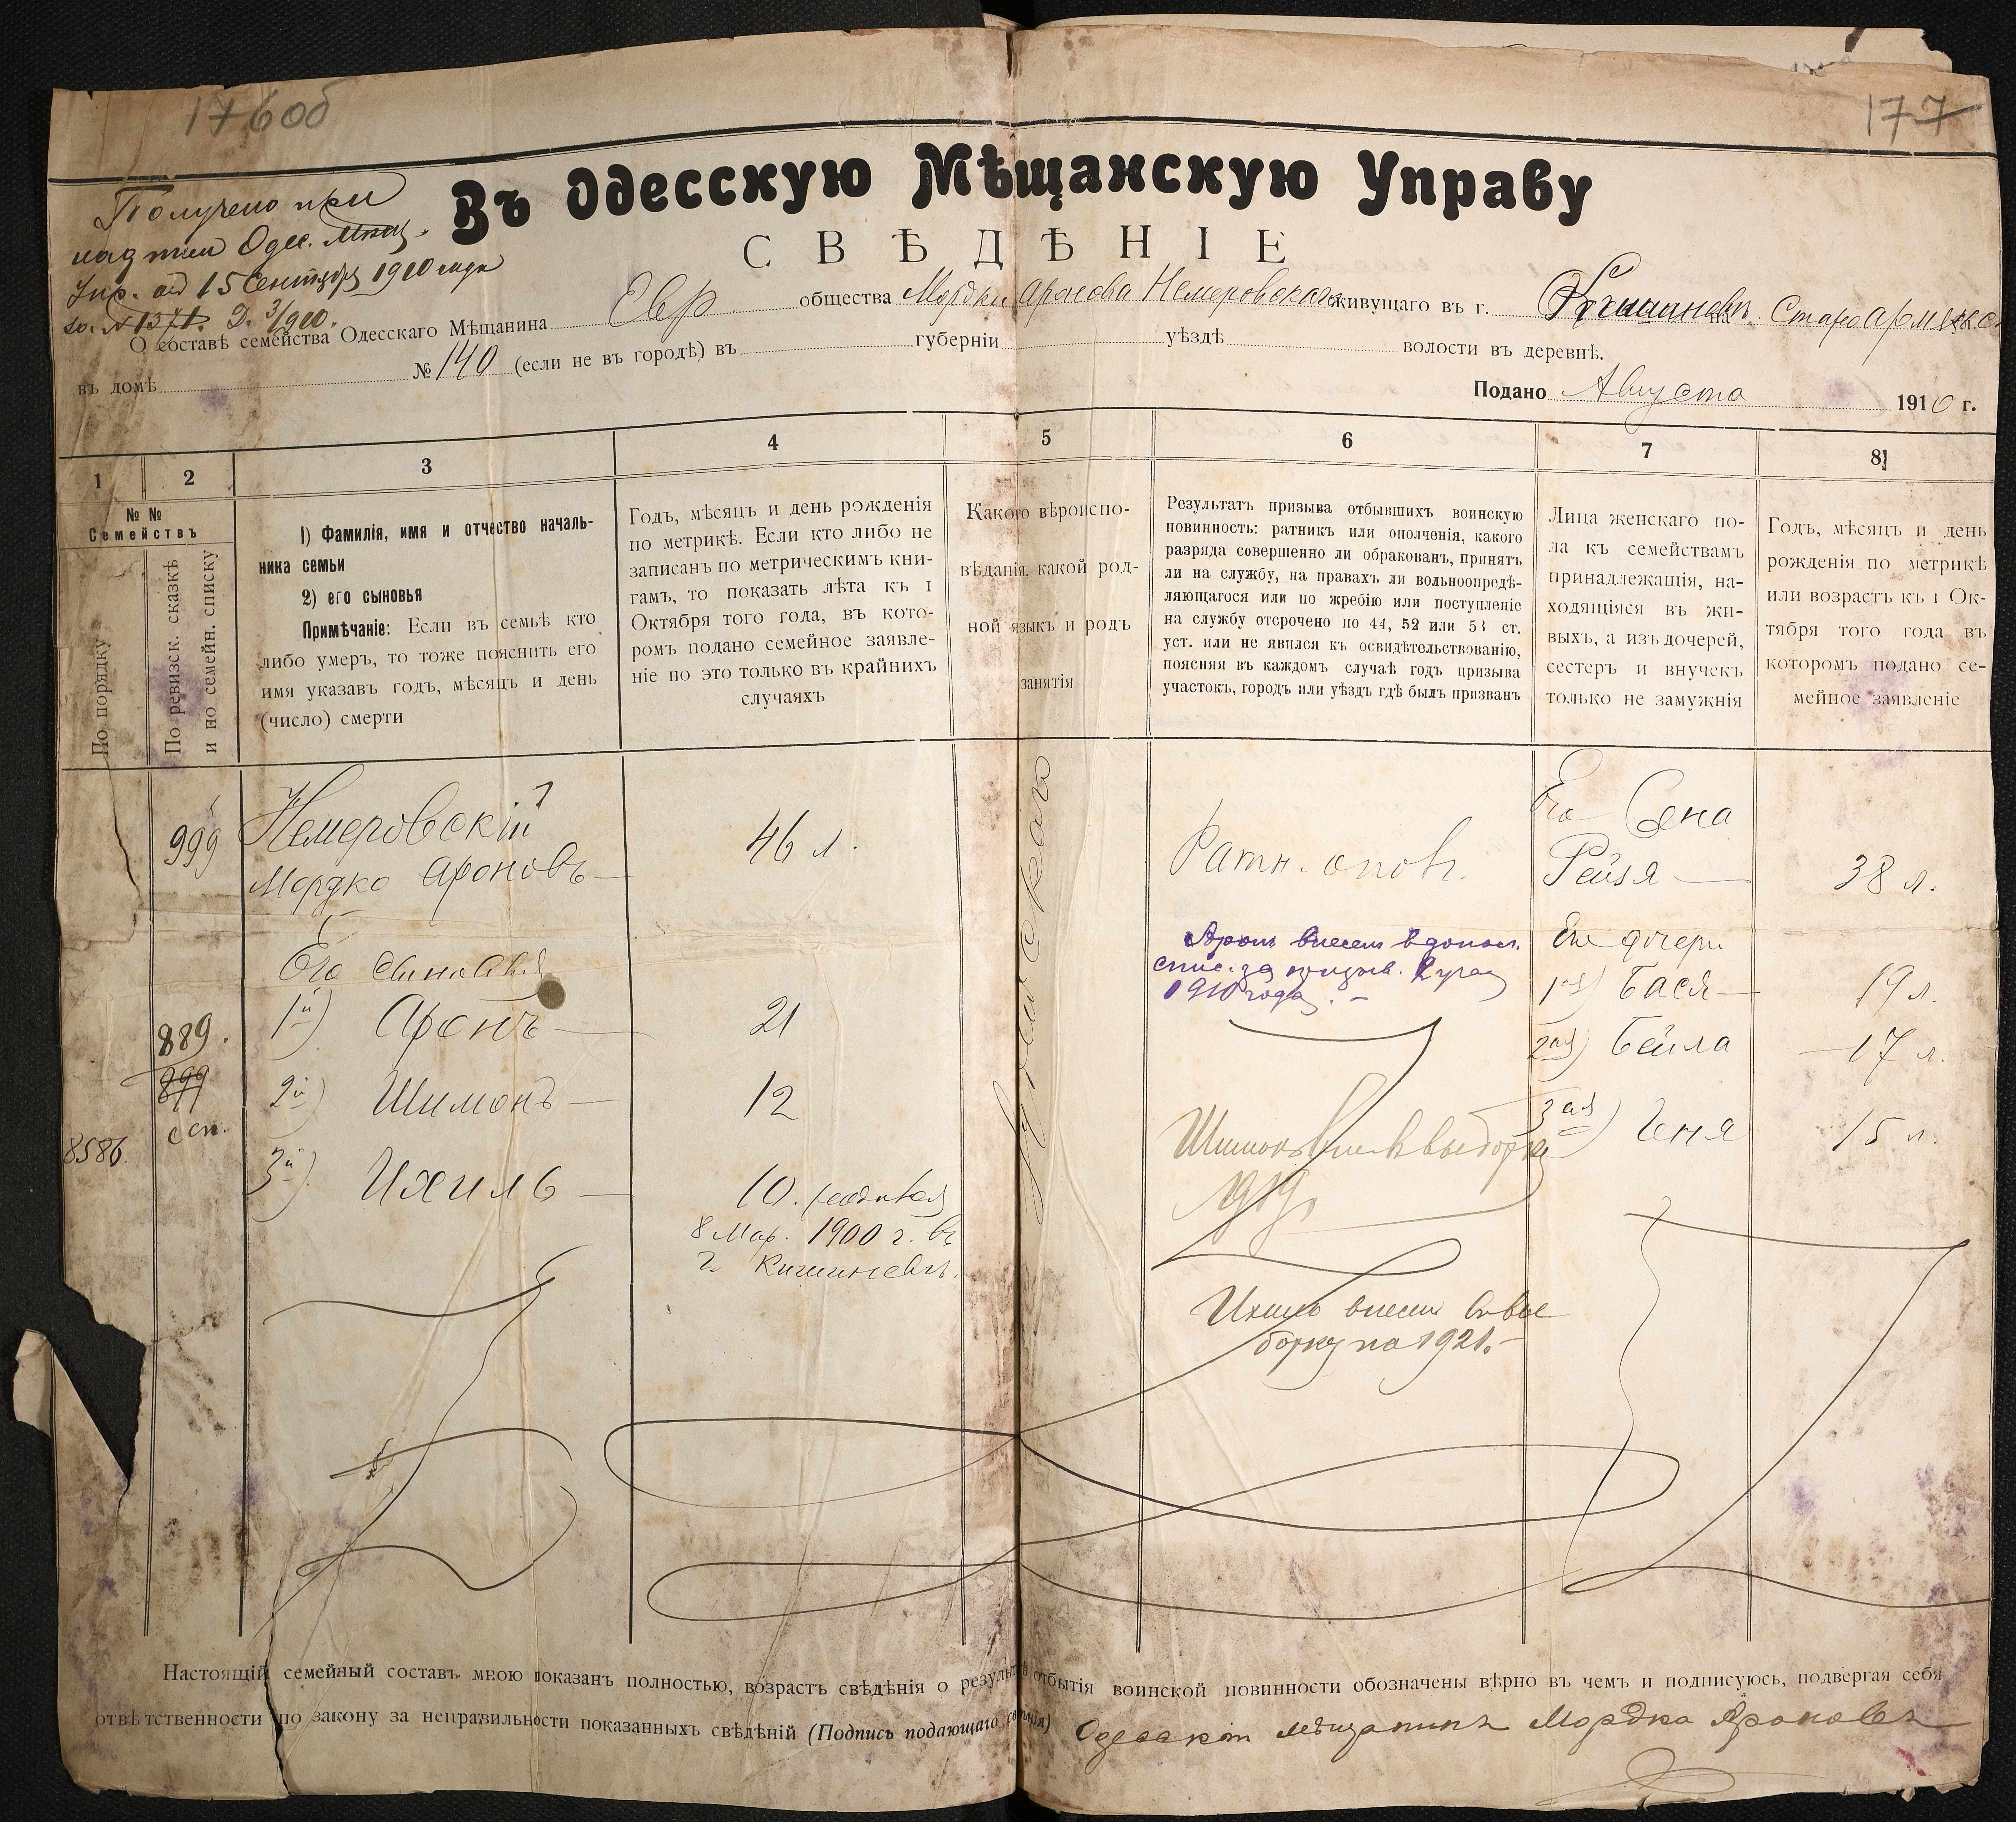 176об
177
Въ Одесскую Мѣщанскую Управу
СВѢДѢНІЕ
Получено при
надписи Одес. Мѣщ.
Упр. отъ 15 Сентября 1910 года
за № 1371. Д. 3/910.
О составѣ семейства Одесскаго Мѣщанина Евр. общества Мордки Аронова Немеровскаго живущаго въ г. Кишиневѣ на Старо Армянск.
въ домѣ № 140 (если не въ городѣ) въ губерніи уѣздѣ волости въ деревнѣ.
Подано Августа 1910 г.
1 2 3 4 5 6 7 8
№ №
Семействъ
По порядку
По ревизск. сказкѣ
и по семейн. списку
1) Фамилія, имя и отчество началь-
ника семьи
2) его сыновья
Примѣчаніе: Если въ семьѣ кто
либо умеръ, то тоже пояснить его
имя указавъ годъ, мѣсяцъ и день
(число) смерти
Годъ, мѣсяцъ и день рожденія
по метрикѣ. Если кто либо не
записанъ по метрическимъ кни-
гамъ, то показать лѣта къ 1
Октября того года, въ кото-
ромъ подано семейное заявле-
ніе но это только въ крайнихъ
случаяхъ
Какого вѣроиспо-
вѣданія, какой род-
ной языкъ и родъ
занятія
Результатъ призыва отбывшихъ воинскую
повинность: ратникъ или ополченія, какого
разряда совершенно ли обракованъ, принятъ
ли на службу, на правахъ ли вольноопредѣ-
ляющагося или по жребію или поступленіе
на службу отсрочено по 44, 52 или 53 ст.
уст. или не явился къ освидѣтельствованію,
поясняя въ каждомъ случаѣ годъ призыва
участокъ, городъ или уѣздъ гдѣ былъ призванъ
Лица женскаго по-
ла къ семействамъ
принадлежащія, на-
ходящіяся въ жи-
выхъ, а изъ дочерей,
сестеръ и внучекъ
только не замужнія
Годъ, мѣсяцъ и день
рожденія по метрикѣ
или возрастъ къ 1 Ок-
тября того года въ
которомъ подано се-
мейное заявленіе
999
Немеровскій
Мордко Ароновъ
46 л.
Ратн. опол.
Его жена
Рейзя
38 л.
Его сыновья
1й) Аронъ
21
889.
899
сп.
8586
2й) Шимонъ
12
3й) Ихиль
10. родился
8 Мар. 1900 г. въ
г. Кишиневѣ.
Іудейскаго
Аронъ внесенъ в допол.
спис. за призыв. 2 участ
1910 года. -
Шимонъ внес. в выборку
1919
Ихиль внесен в вы-
борку на 1921. -
Его дочери
1ая) Бася
19 л.
2ая) Бейла
17 л.
3ая) Геня
15 л.
Настоящій семейный составъ мною показанъ полностью, возрастъ свѣдѣнія о результатѣ отбытія воинской повинности обозначены вѣрно въ чемъ и подписуюсь, подвергая себя
отвѣтственности по закону за неправильности показанныхъ свѣдѣній (Подпись подающаго свѣдѣнія) Одесскій мѣщанинъ Мордко Ароновъ